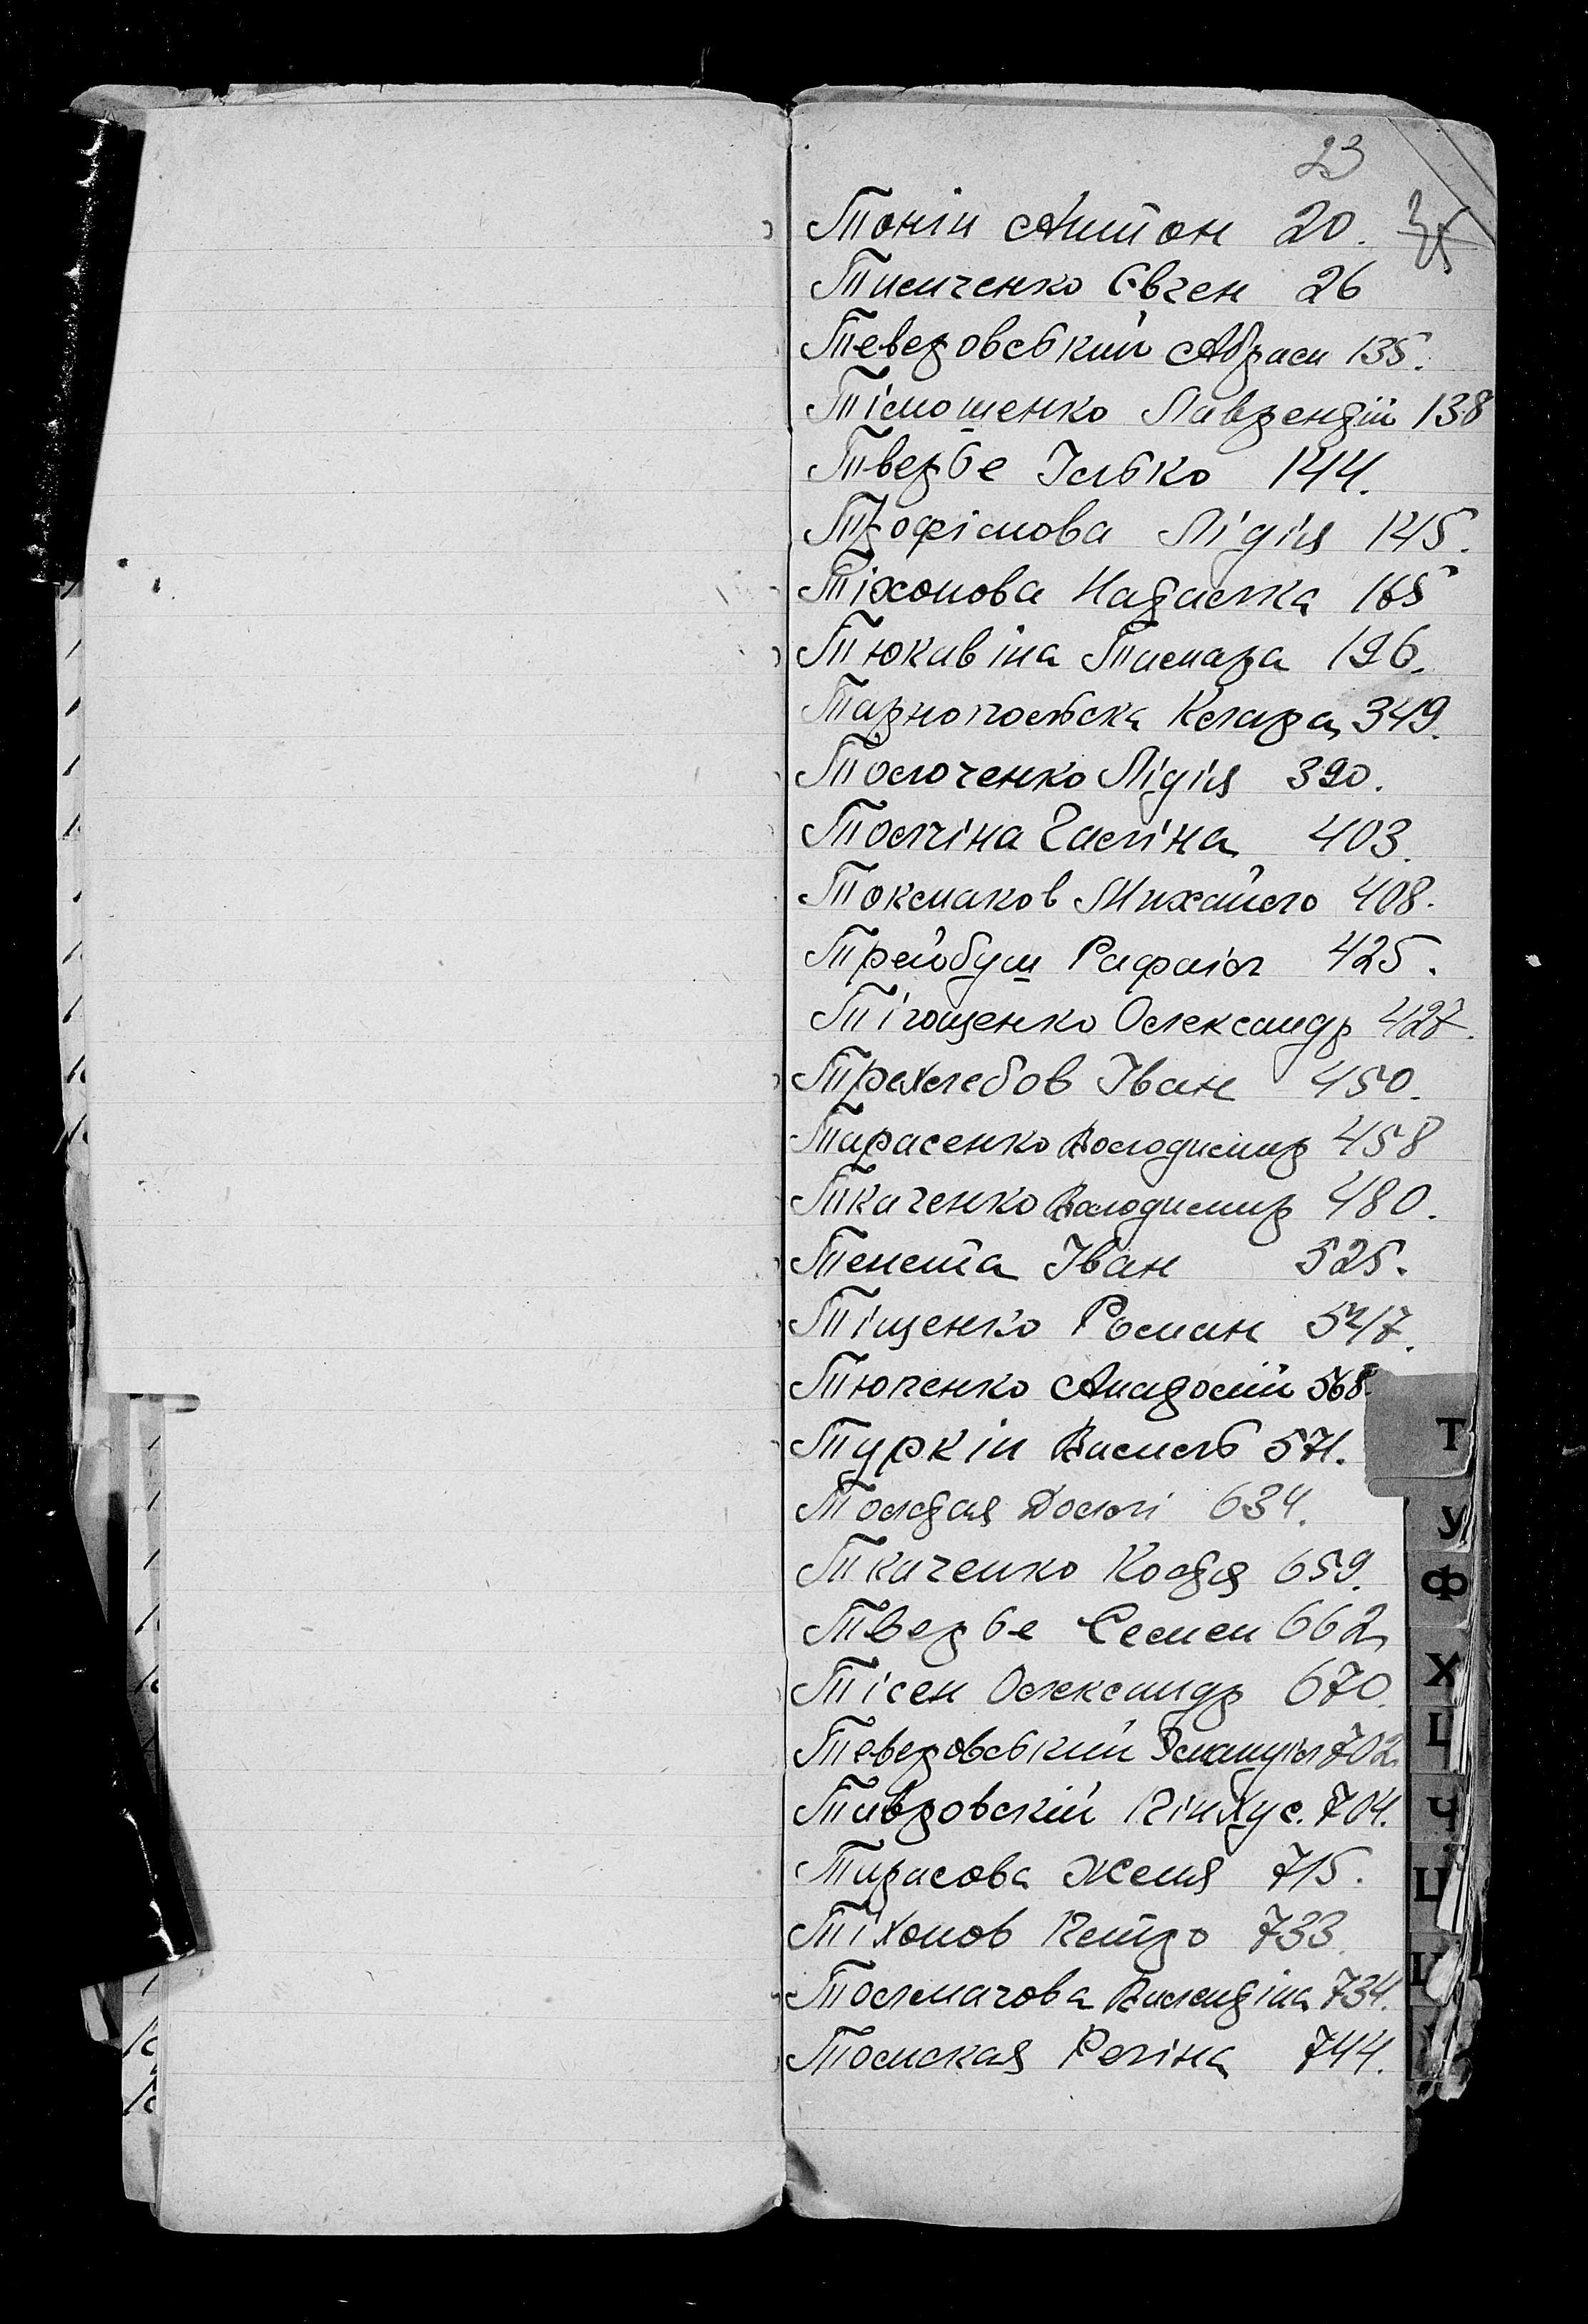 23
35
Тонін Антон 20.
Тимченко Євген 26
Теверовський Абрам 135.
Тімошенко Лаврентій 138
Твербе Ілько 144.
Трофімова Лідія 145.
Тіхонова Надалка 165
Тюкавіна Тамара 196.
Тарнопольска Клара 349.
Толоченко Лідія 390.
Толчіна Галіна 403.
Токмаков Михайло 408.
Трейбуш Рафаіл 425.
Тігощенко Олександр 427.
Трахлебов Іван 450.
Тарасенко Володимир 458
Ткаченко Володимир 480.
Тенета Іван 525.
Тіщенко Роман 547.
Тюпенко Анатолій 568.
Туркін Василь 571.
Толстая 634.
Ткаченко Костя 659.
Твербе Семен 662
Тісен Олександр 670.
Теверовський Эмануіл 702.
Тавровскій Пінхус. 704.
Тарасова Женя 715.
Тіхонов Петро 733.
Толмачова Валентіна 734.
Томская Регіна 744.
Т
У
Ф
Х
Ц
Ч